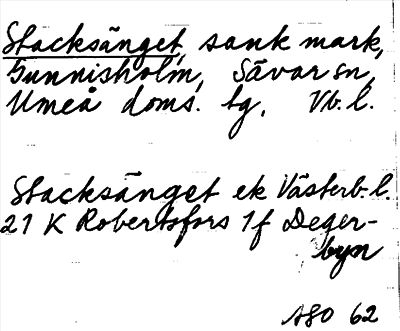 Stacksänget, sank mark,
Gunnisholm, Sävar sn,
Umeå doms. tg, Vb. l.
Stacksänget ek Västerb. l.
21 K Robertsfors 1f Deger-
byn
ASO 62